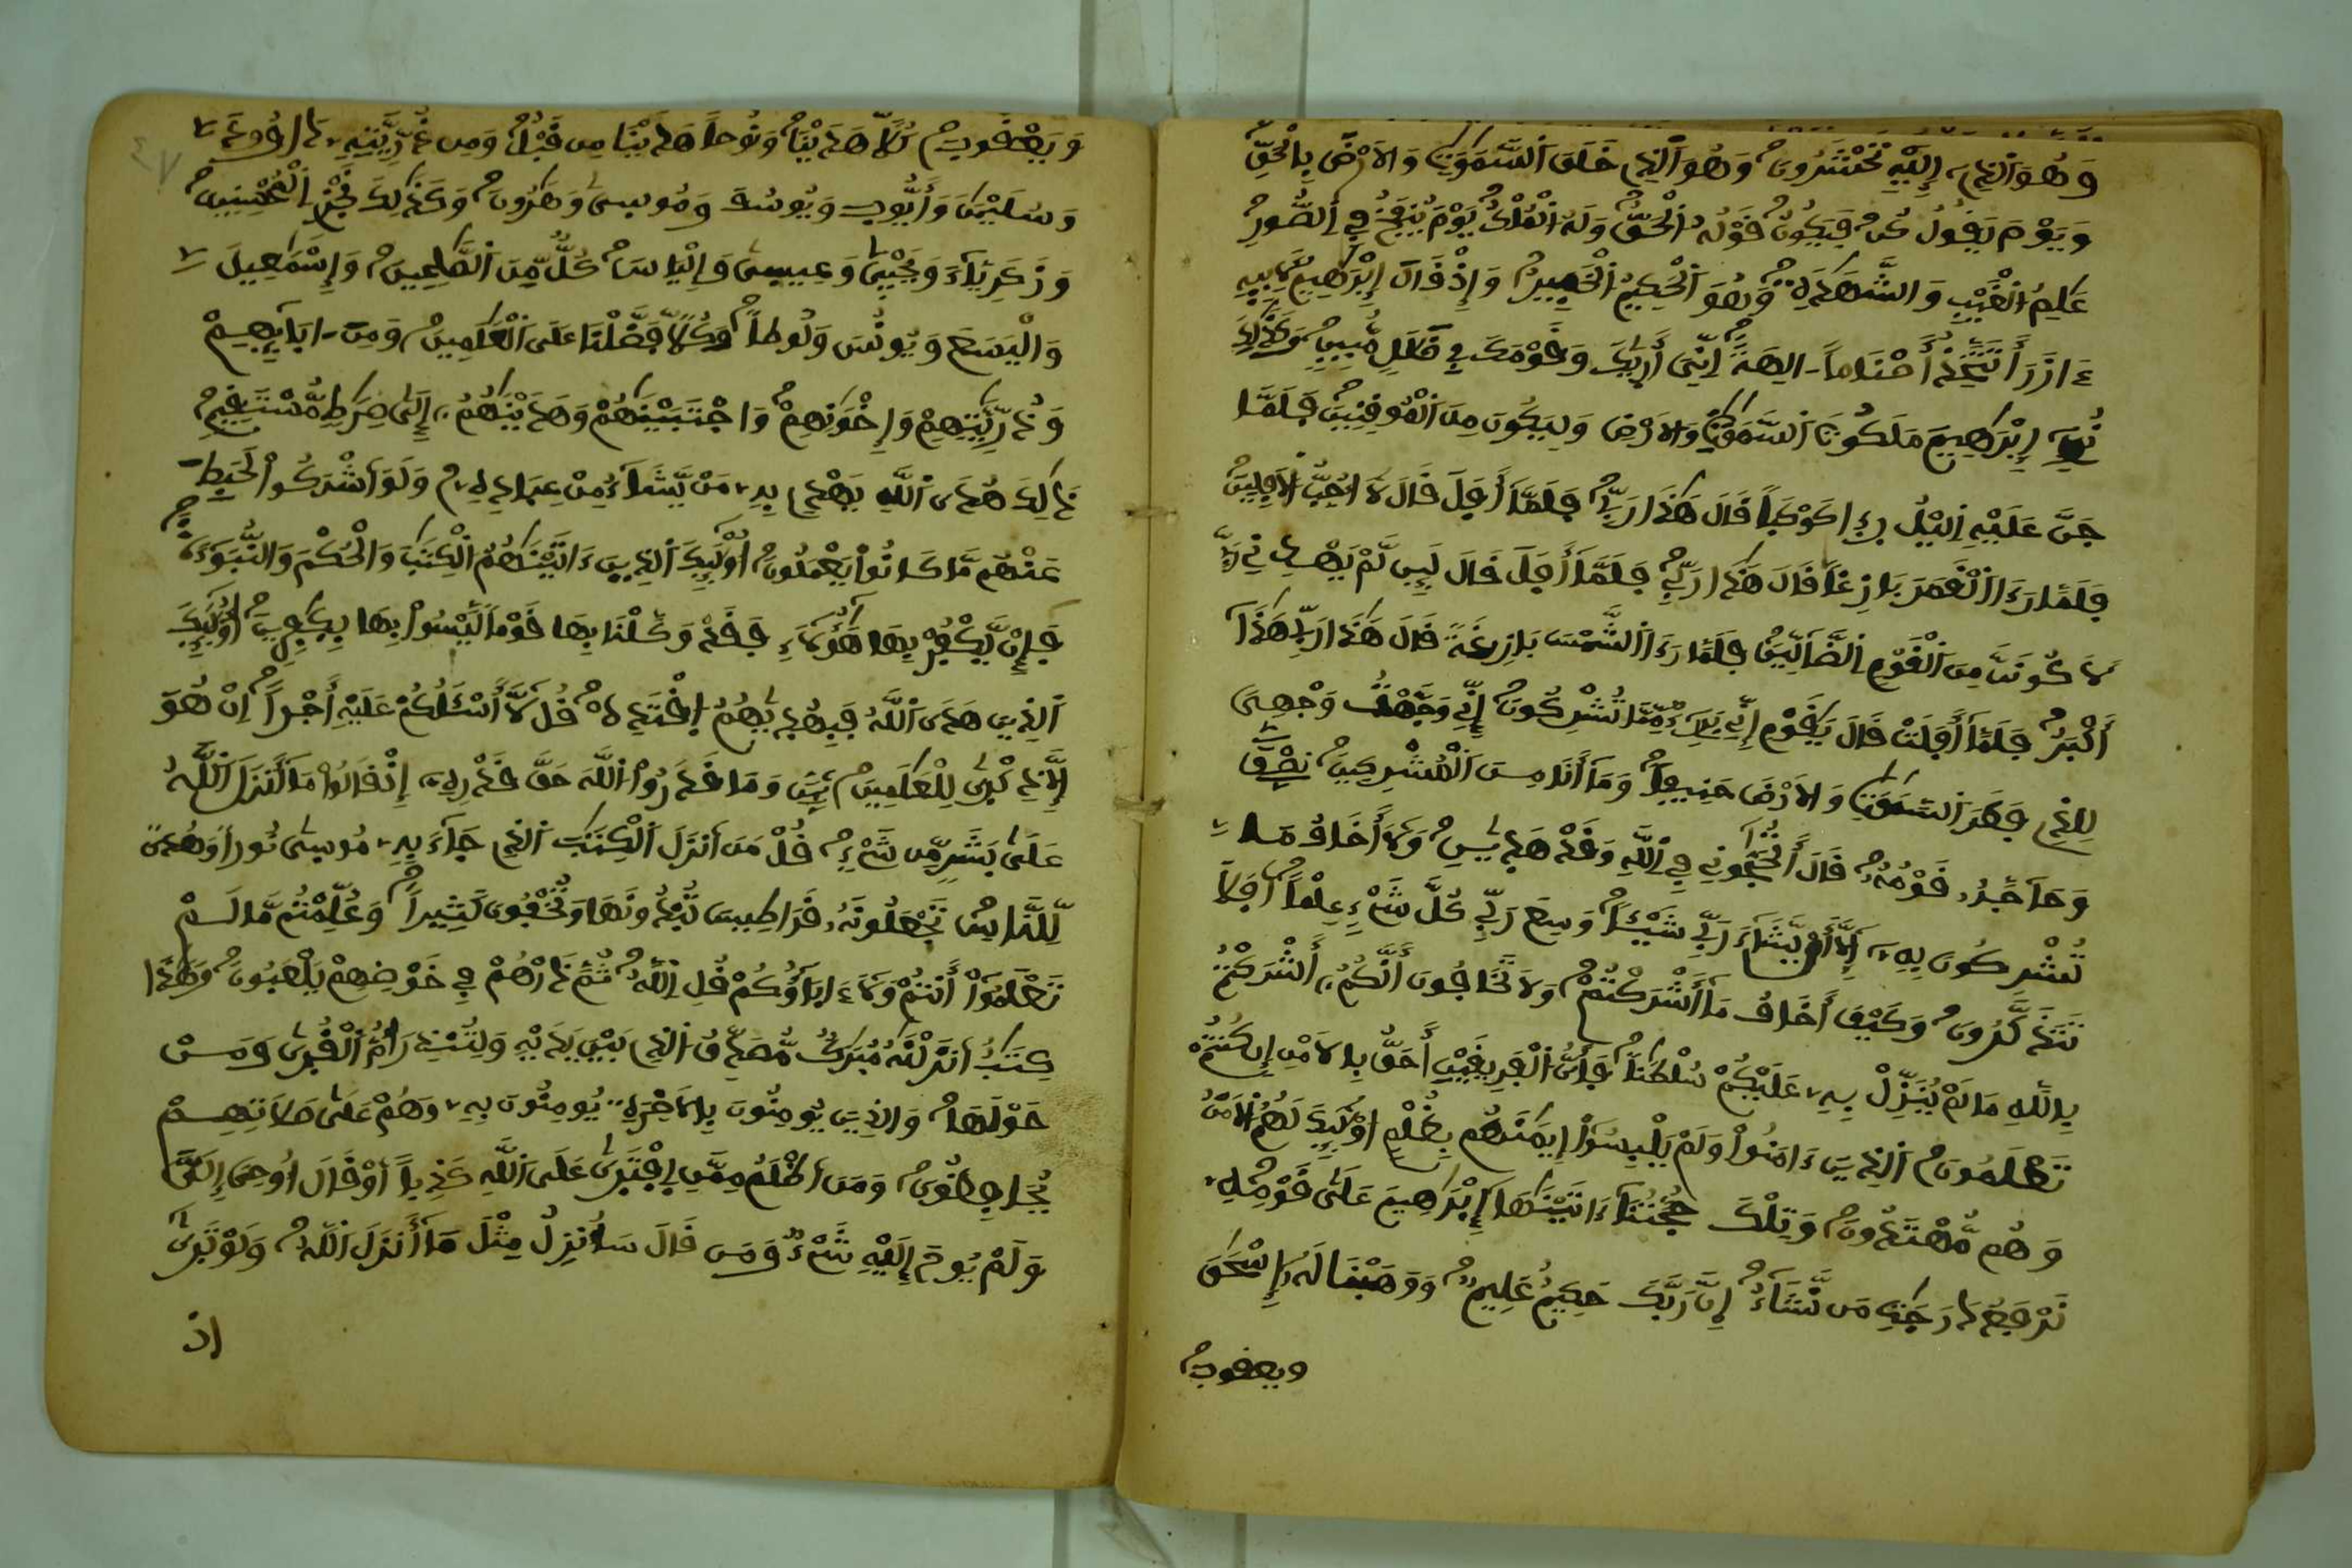 وَهُوَ ٱلذِے إِلَيْهِ تُحْشَرُونَ وَهُوَ ٱلذِے خَلَقَ ٱلسَّمَٰوَٰتِ وَالَارْضَ بِالْحَقِّ
وَيَوْمَ يَقُولُ كُن فَيَكُونُ قَوْلُهُ ٱلْحَقُّ وَلَهُ ٱلْمُلْكُ يَوْمَ يُنفَخُ فِے ٱلصُّورِ
عَٰلِمُ ٱلْغَيْبِ وَالشَّهَٰدَةِ وَهُوَ ٱلْحَكِيمُ ٱلْخَبِيرُ وَإِذْ قَالَ إِبْرَٰهِيمُ لِأَبِيهِ
ءَازَرَ أَتَتَّخِذُ أَصْنَاماً ـالِهَةً اِنِّيَ أَر۪يٰكَ وَقَوْمَكَ فِے ضَلَٰلٖ مُّبِينٖ وَكَذَٰلِكَ
نُرِے إِبْرَٰهِيمَ مَلَكُوتَ ٱلسَّمَٰوَٰتِ وَالَارْضِ وَلِيَكُونَ مِنَ ٱلْمُوقِنِينَ فَلَمَّا
جَنَّ عَلَيْهِ اِليْلُ رِء۪ا كَوْكَباً قَالَ هَٰذَا رَبِّے فَلَمَّا أَفَلَ قَالَ لَا أُحِبُّ اُلَافِلِينَ
فَلَمَّا رَءَا اَلْقَمَرَ بَازِغاً قَالَ هَٰذَا رَبِّے فَلَمَّا أَفَلَ قَالَ لَئِن لَّمْ يَهْدِنِے رَبِّے
لَأَكُونَنَّ مِنَ ٱلْقَوْمِ اِلضَّآلِّينَ فَلَمَّا رَءَا اَلشَّمْسَ بَازِغَةً قَالَ هَٰذَا رَبِّے هَٰذَا
أَكْبَرُ فَلَمَّا أَفَلَتْ قَالَ يَٰقَوْمِ إِنِّے بَرِےٓءٌ مِّمَّا تُشْرِكُونَ إِنِّے وَجَّهْتُ وَجْهِيَ
لِلذِے فَطَرَ ٱلسَّمَٰوَٰتِ وَالَارْضَ حَنِيفاً وَمَا أَنَا مِنَ ٱلْمُشْرِكِينَ نِصْف
وَحَآجَّهُۥ قَوْمُهُۥ قَالَ أَتُحَٰجُّونِے فِے ٱللَّهِ وَقَدْ هَد۪يٰنِ وَلَا أَخَافُ مَا
تُشْرِكُونَ بِهِۦ إِلَّا أَنْ يَّشَآءَ رَبِّے شَيْـٔاً وَسِعَ رَبِّے كُلَّ شَےْءٍ عِلْماً اَفَلَا
تَتَذَكَّرُونَ وَكَيْفَ أَخَافُ مَا أَشْرَكْتُمْ وَلَا تَخَافُونَ أَنَّكُمُۥ أَشْرَكْتُم
بِاللَّهِ مَا لَمْ يُنَزِّلْ بِهِۦ عَلَيْكُمْ سُلْطَٰناً فَأَيُّ اُلْفَرِيقَيْنِ أَحَقُّ بِالَامْنِ إِن كُنتُمْ
تَعْلَمُونَ ٱلذِينَ ءَامَنُواْ وَلَمْ يَلْبِسُواْ إِيمَٰنَهُم بِظُلْمٍ اوْلَٰٓئِكَ لَهُمُ اُلَامْنُ
وَهُم مُّهْتَدُونَ وَتِلْكَ حُجَّتُنَآ ءَاتَيْنَٰهَآ إِبْرَٰهِيمَ عَلَىٰ قَوْمِهِۦ
نَرْفَعُ دَرَجَٰتِ مَن نَّشَآءُ اِنَّ رَبَّكَ حَكِيمٌ عَلِيمٌ وَوَهَبْنَا لَهُۥ إِسْحَٰقَ
ويعقوب
وَيَعْقُوبَ كُلًّا هَدَيْنَا وَنُوحاً هَدَيْنَا مِن قَبْلُ وَمِن ذُرِّيَّتِهِۦ دَاوُۥدَ
وَسُلَيْمَٰنَ وَأَيُّوبَ وَيُوسُفَ وَمُوس۪يٰ وَهَٰرُونَ وَكَذَٰلِكَ نَجْزِے ٱلْمُحْسِنِينَ
وَزَكَرِيَّآءَ وَيَحْي۪يٰ وَعِيس۪يٰ وَإِلْيَاسَ كُلٌّ مِّنَ ٱلصَّٰلِحِينَ وَإِسْمَٰعِيلَ
وَالْيَسَعَ وَيُونُسَ وَلُوطاً وَكُلًّا فَضَّلْنَا عَلَى ٱلْعَٰلَمِينَ وَمِنَ ـابَآئِهِمْ
وَذُرِّيَّٰتِهِمْ وَإِخْوَٰنِهِمْ وَاجْتَبَيْنَٰهُمْ وَهَدَيْنَٰهُمُۥ إِلَىٰ صِرَٰطٖ مُّسْتَقِيمٖ
ذَٰلِكَ هُدَى ٱللَّهِ يَهْدِے بِهِۦ مَنْ يَّشَآءُ مِنْ عِبَادِهِۦ وَلَوَ اَشْرَكُواْ لَحَبِطَ
عَنْهُم مَّا كَانُواْ يَعْمَلُونَ أُوْلَٰٓئِكَ ٱلذِينَ ءَاتَيْنَٰهُمُ ٱلْكِتَٰبَ وَالْحُكْمَ وَالنُّبُوٓءَةَ
فَإِنْ يَّكْفُرْ بِهَا هَٰٓؤُلَآءِ فَقَدْ وَكَّلْنَا بِهَا قَوْماً لَّيْسُواْ بِهَا بِكَٰفِرِينَ أُوْلَٰٓئِكَ
ٱلذِينَ هَدَى ٱللَّهُ فَبِهُد۪يٰهُمُ اُقْتَدِهْ قُل لَّا أَسْـَٔلُكُمْ عَلَيْهِ أَجْراً اِنْ هُوَ
إِلَّا ذِكْر۪يٰ لِلْعَٰلَمِينَ وَمَا قَدَرُواْ اُللَّهَ حَقَّ قَدْرِهِۦ إِذْ قَالُواْ مَا أَنزَلَ ٱللَّهُ
عَلَىٰ بَشَرٖ مِّن شَےْءٖ قُلْ مَنَ اَنزَلَ ٱلْكِتَٰبَ ٱلذِے جَآءَ بِهِۦ مُوس۪يٰ نُوراً وَهُدىً
لِّلنَّاسِ تَجْعَلُونَهُۥ قَرَاطِيسَ تُبْدُونَهَا وَتُخْفُونَ كَثِيراً وَعُلِّمْتُم مَّا لَمْ
تَعْلَمُواْ أَنتُمْ وَلَا ءَابَآؤُكُمْ قُلِ اِللَّهُ ثُمَّ ذَرْهُمْ فِے خَوْضِهِمْ يَلْعَبُونَ وَهَٰذَا
كِتَٰبٌ اَنزَلْنَٰهُ مُبَٰرَكٌ مُّصَدِّقُ ٱلذِے بَيْنَ يَدَيْهِ وَلِتُنذِرَ أُمَّ ٱلْقُر۪يٰ وَمَنْ
حَوْلَهَا وَالذِينَ يُومِنُونَ بِالَاخِرَةِ يُومِنُونَ بِهِۦ وَهُمْ عَلَىٰ صَلَاتِهِمْ
يُحَافِظُونَ وَمَنَ اَظْلَمُ مِمَّنِ اِفْتَر۪يٰ عَلَى ٱللَّهِ كَذِباً أَوْ قَالَ أُوحِيَ إِلَيَّ
وَلَمْ يُوحَ إِلَيْهِ شَےْءٌ وَمَن قَالَ سَأُنزِلُ مِثْلَ مَا أَنزَلَ ٱللَّهُ وَلَوْ تَر۪يٰ
اذ